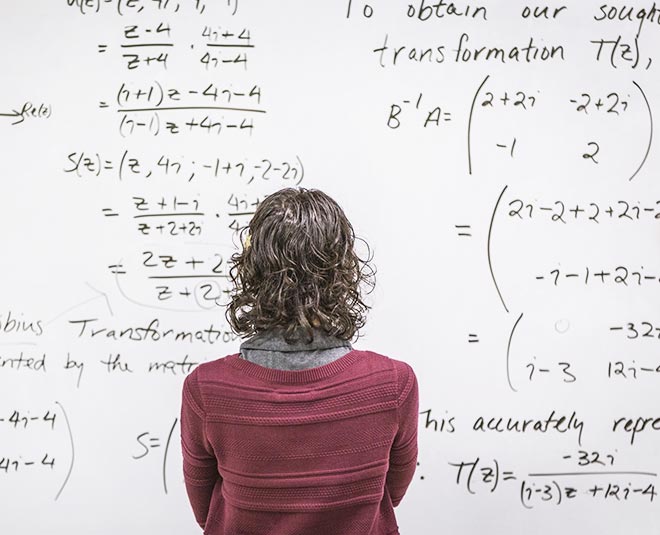 = z-4/z+4 · 4i+4/4i-4
= (i+1)z-4i-4/(i-1)z+4i-4
Re(z)
S(z)=(z, 4i; -1+i, -2-2i)
= z+1-i/z+2+2i ·
= 2z+2
z+(2)
Transformation
by the
-4i-4
4i-4
S=(
To obtain our sought
transformation T(z),
B⁻¹A= (2+2i -2+2i
-1 2)
= (2i-2+2+2i-2
-i-1+2i-
= ( -32i
i-3 12i-4
This accurately
T(z)= -32i/(i-3)z+12i-4